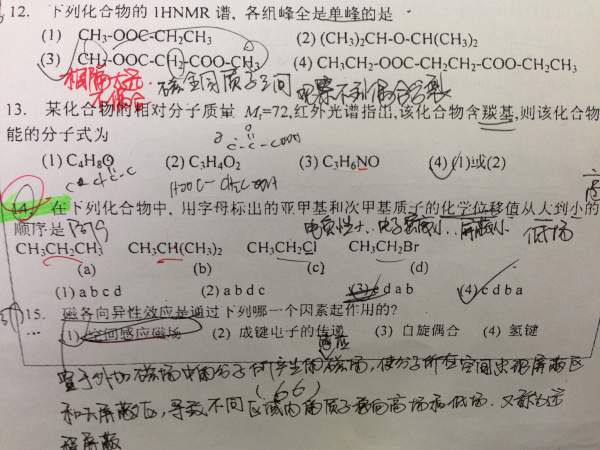 12. 下列化合物的 1HNMR 谱, 各组峰全是单峰的是
(1) CH₃-OOC-CH₂CH₃ (2) (CH₃)₂CH-O-CH(CH₃)₂
(3) CH₃-OOC-CH₂-COO-CH₃ (4) CH₃CH₂-OOC-CH₂CH₂-COO-CH₂CH₃
相隔太远 不偶合 磁全同质子之间 观察不到偶合分裂
13. 某化合物的相对分子质量 Mᵣ=72,红外光谱指出,该化合物含羰基,则该化合物可
能的分子式为
(1) C₄H₈O (2) C₃H₄O₂ (3) C₃H₆NO (4) (1)或(2)
14. 在下列化合物中, 用字母标出的亚甲基和次甲基质子的化学位移值从大到小的
顺序是 电负性大 屏蔽小 低场
CH₃CH₂CH₃ CH₃CH(CH₃)₂ CH₃CH₂Cl CH₃CH₂Br
(a) (b) (c) (d)
(1) a b c d (2) a b d c (3) c d a b (4) c d b a
15. 磁各向异性效应是通过下列哪一个因素起作用的?
(1) 空间感应磁场 (2) 成键电子的传递 (3) 自旋偶合 (4) 氢键
感应
置于外加磁场中的分子所产生的磁场, 使分子所在空间出现屏蔽区
(66)
和去屏蔽区, 导致不同区域内的质子移向高场和低场. 又称远
程屏蔽